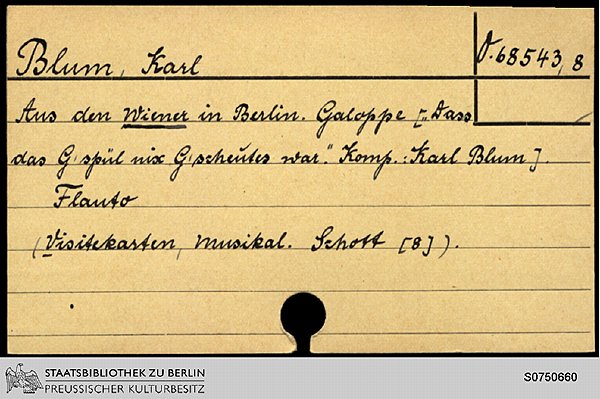 Blum, Karl
O. 68543, 8
Aus den Wiener in Berlin. Galoppe [„Dass
das G'spül nix G'scheutes war." Komp.: Karl Blum].
Flauto
(Visitekarten, Musikal. Schott [8]).
STAATSBIBLIOTHEK ZU BERLIN
PREUSSISCHER KULTURBESITZ
S0750660